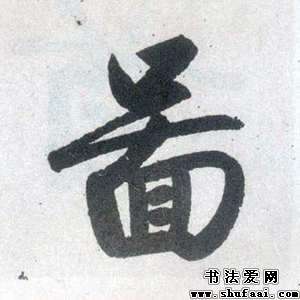 啚
书法爱网
www.shufaai.com